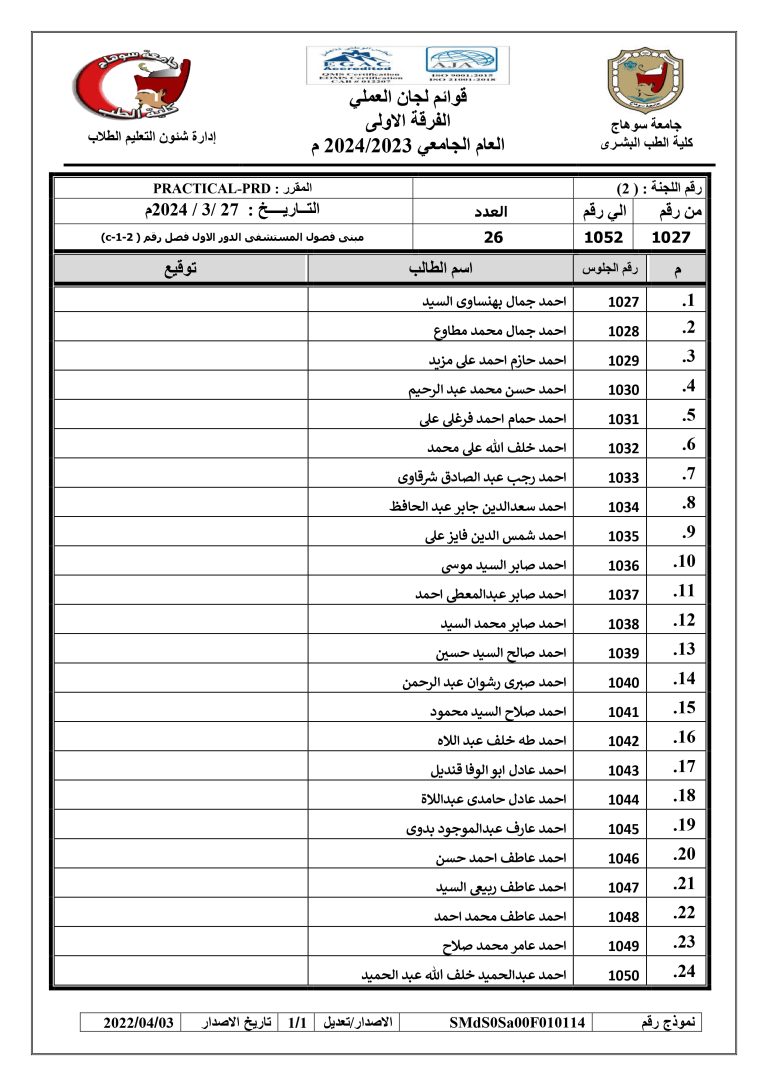 جامعة سوهاج
كلية الطب
إدارة شئون التعليم الطلاب
EGAC
Accredited
QMS Certification
EOHMS Certification
CAB # 012207
AJA
ISO 9001:2015
ISO 21001:2018
قوائم لجان العملي
الفرقة الاولى
العام الجامعي 2024/2023 م
جامعة سوهاج
كلية الطب البشرى
رقم اللجنة : ( 2) المقرر : PRACTICAL-PRD
من رقم الي رقم العدد التــاريـــــخ : 27 /3 / 2024م
1027 1052 26 مبنى فصول المستشفى الدور الاول فصل رقم ( c-1-2)
م رقم الجلوس اسم الطالب توقيع
1. 1027 احمد جمال بهنساوى السيد
2. 1028 احمد جمال محمد مطاوع
3. 1029 احمد حازم احمد على مزيد
4. 1030 احمد حسن محمد عبد الرحيم
5. 1031 احمد حمام احمد فرغلى على
6. 1032 احمد خلف الله على محمد
7. 1033 احمد رجب عبد الصادق شرقاوى
8. 1034 احمد سعدالدين جابر عبد الحافظ
9. 1035 احمد شمس الدين فايز على
10. 1036 احمد صابر السيد موسى
11. 1037 احمد صابر عبدالمعطى احمد
12. 1038 احمد صابر محمد السيد
13. 1039 احمد صالح السيد حسين
14. 1040 احمد صبرى رشوان عبد الرحمن
15. 1041 احمد صلاح السيد محمود
16. 1042 احمد طه خلف عبد اللاه
17. 1043 احمد عادل ابو الوفا قنديل
18. 1044 احمد عادل حامدى عبداللاة
19. 1045 احمد عارف عبدالموجود بدوى
20. 1046 احمد عاطف احمد حسن
21. 1047 احمد عاطف ربيعى السيد
22. 1048 احمد عاطف محمد احمد
23. 1049 احمد عامر محمد صلاح
24. 1050 احمد عبدالحميد خلف الله عبد الحميد
نموذج رقم SMdS0Sa00F010114 الاصدار/تعديل 1/1 تاريخ الاصدار 2022/04/03